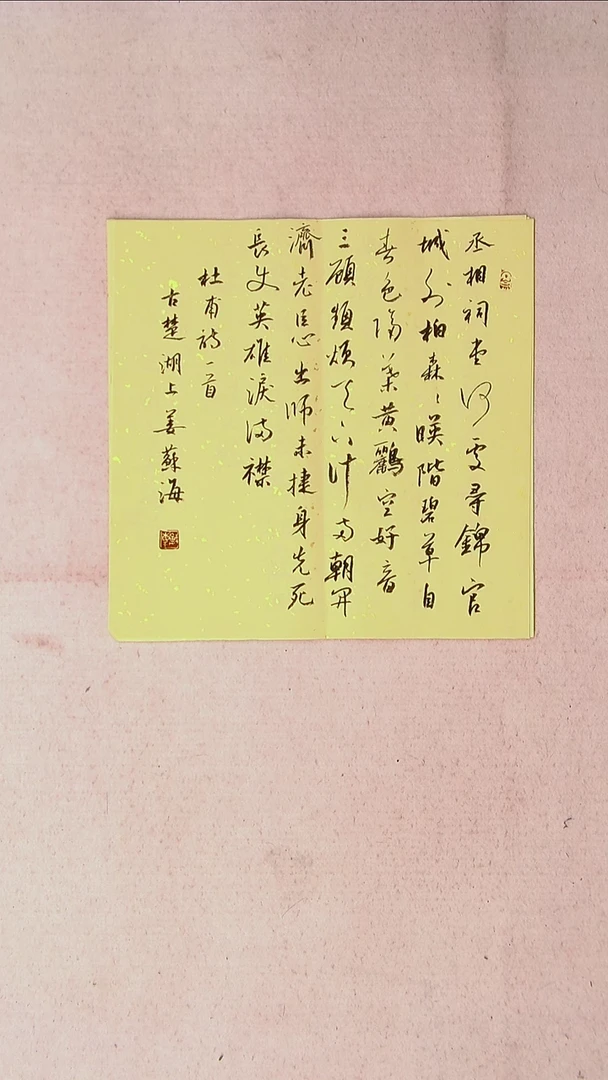 丞相祠堂何處尋錦官
城外柏森々映階碧草自
春色隔葉黃鸝空好音
三顧頻煩天下計兩朝開
濟老臣心出師未捷身先死
長使英雄淚滿襟
杜甫詩一首
古楚湖上姜蘇海